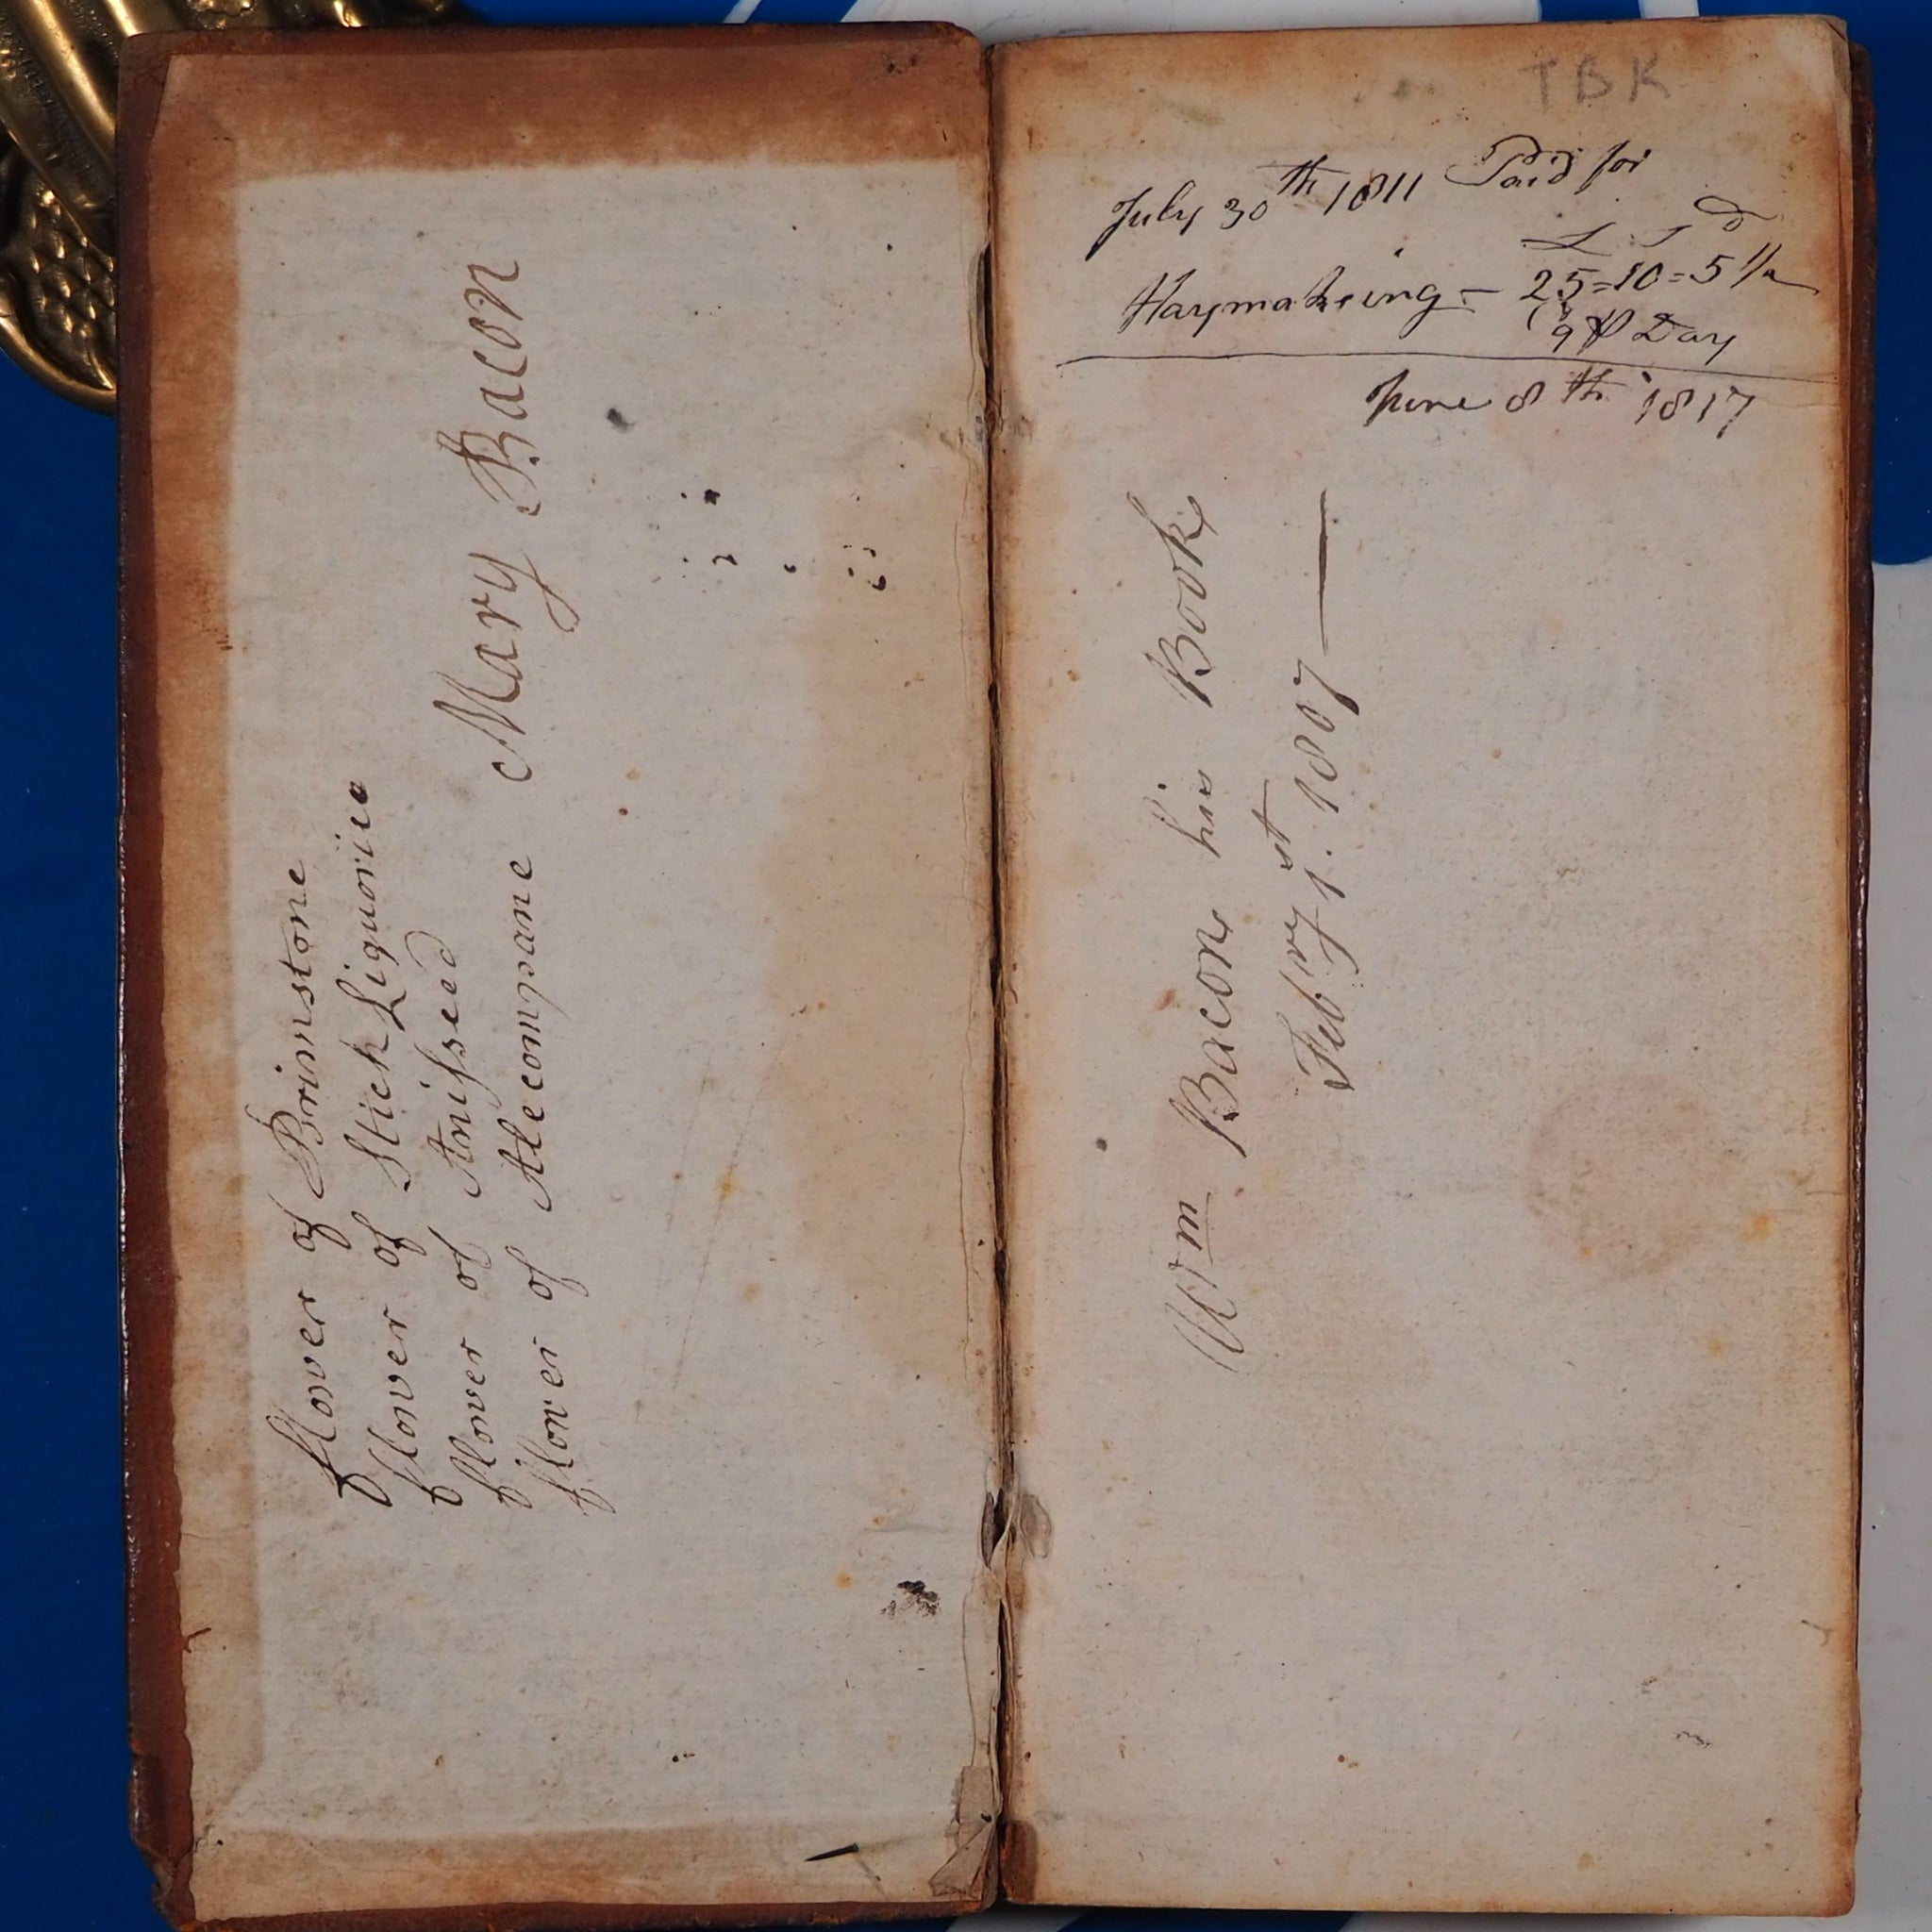 flower of Brimstone
flower of Stick Liquorice
flower of Anifseed
flower of Alecompane
Mary Bacon
TBK
July 30th 1811 Paid for
£ s d
Haymakeing - 25=10=5 1/2
9 ⅌ Day
June 8th 1817
Wm Bacon his Book
Febry 1st. 1807 —